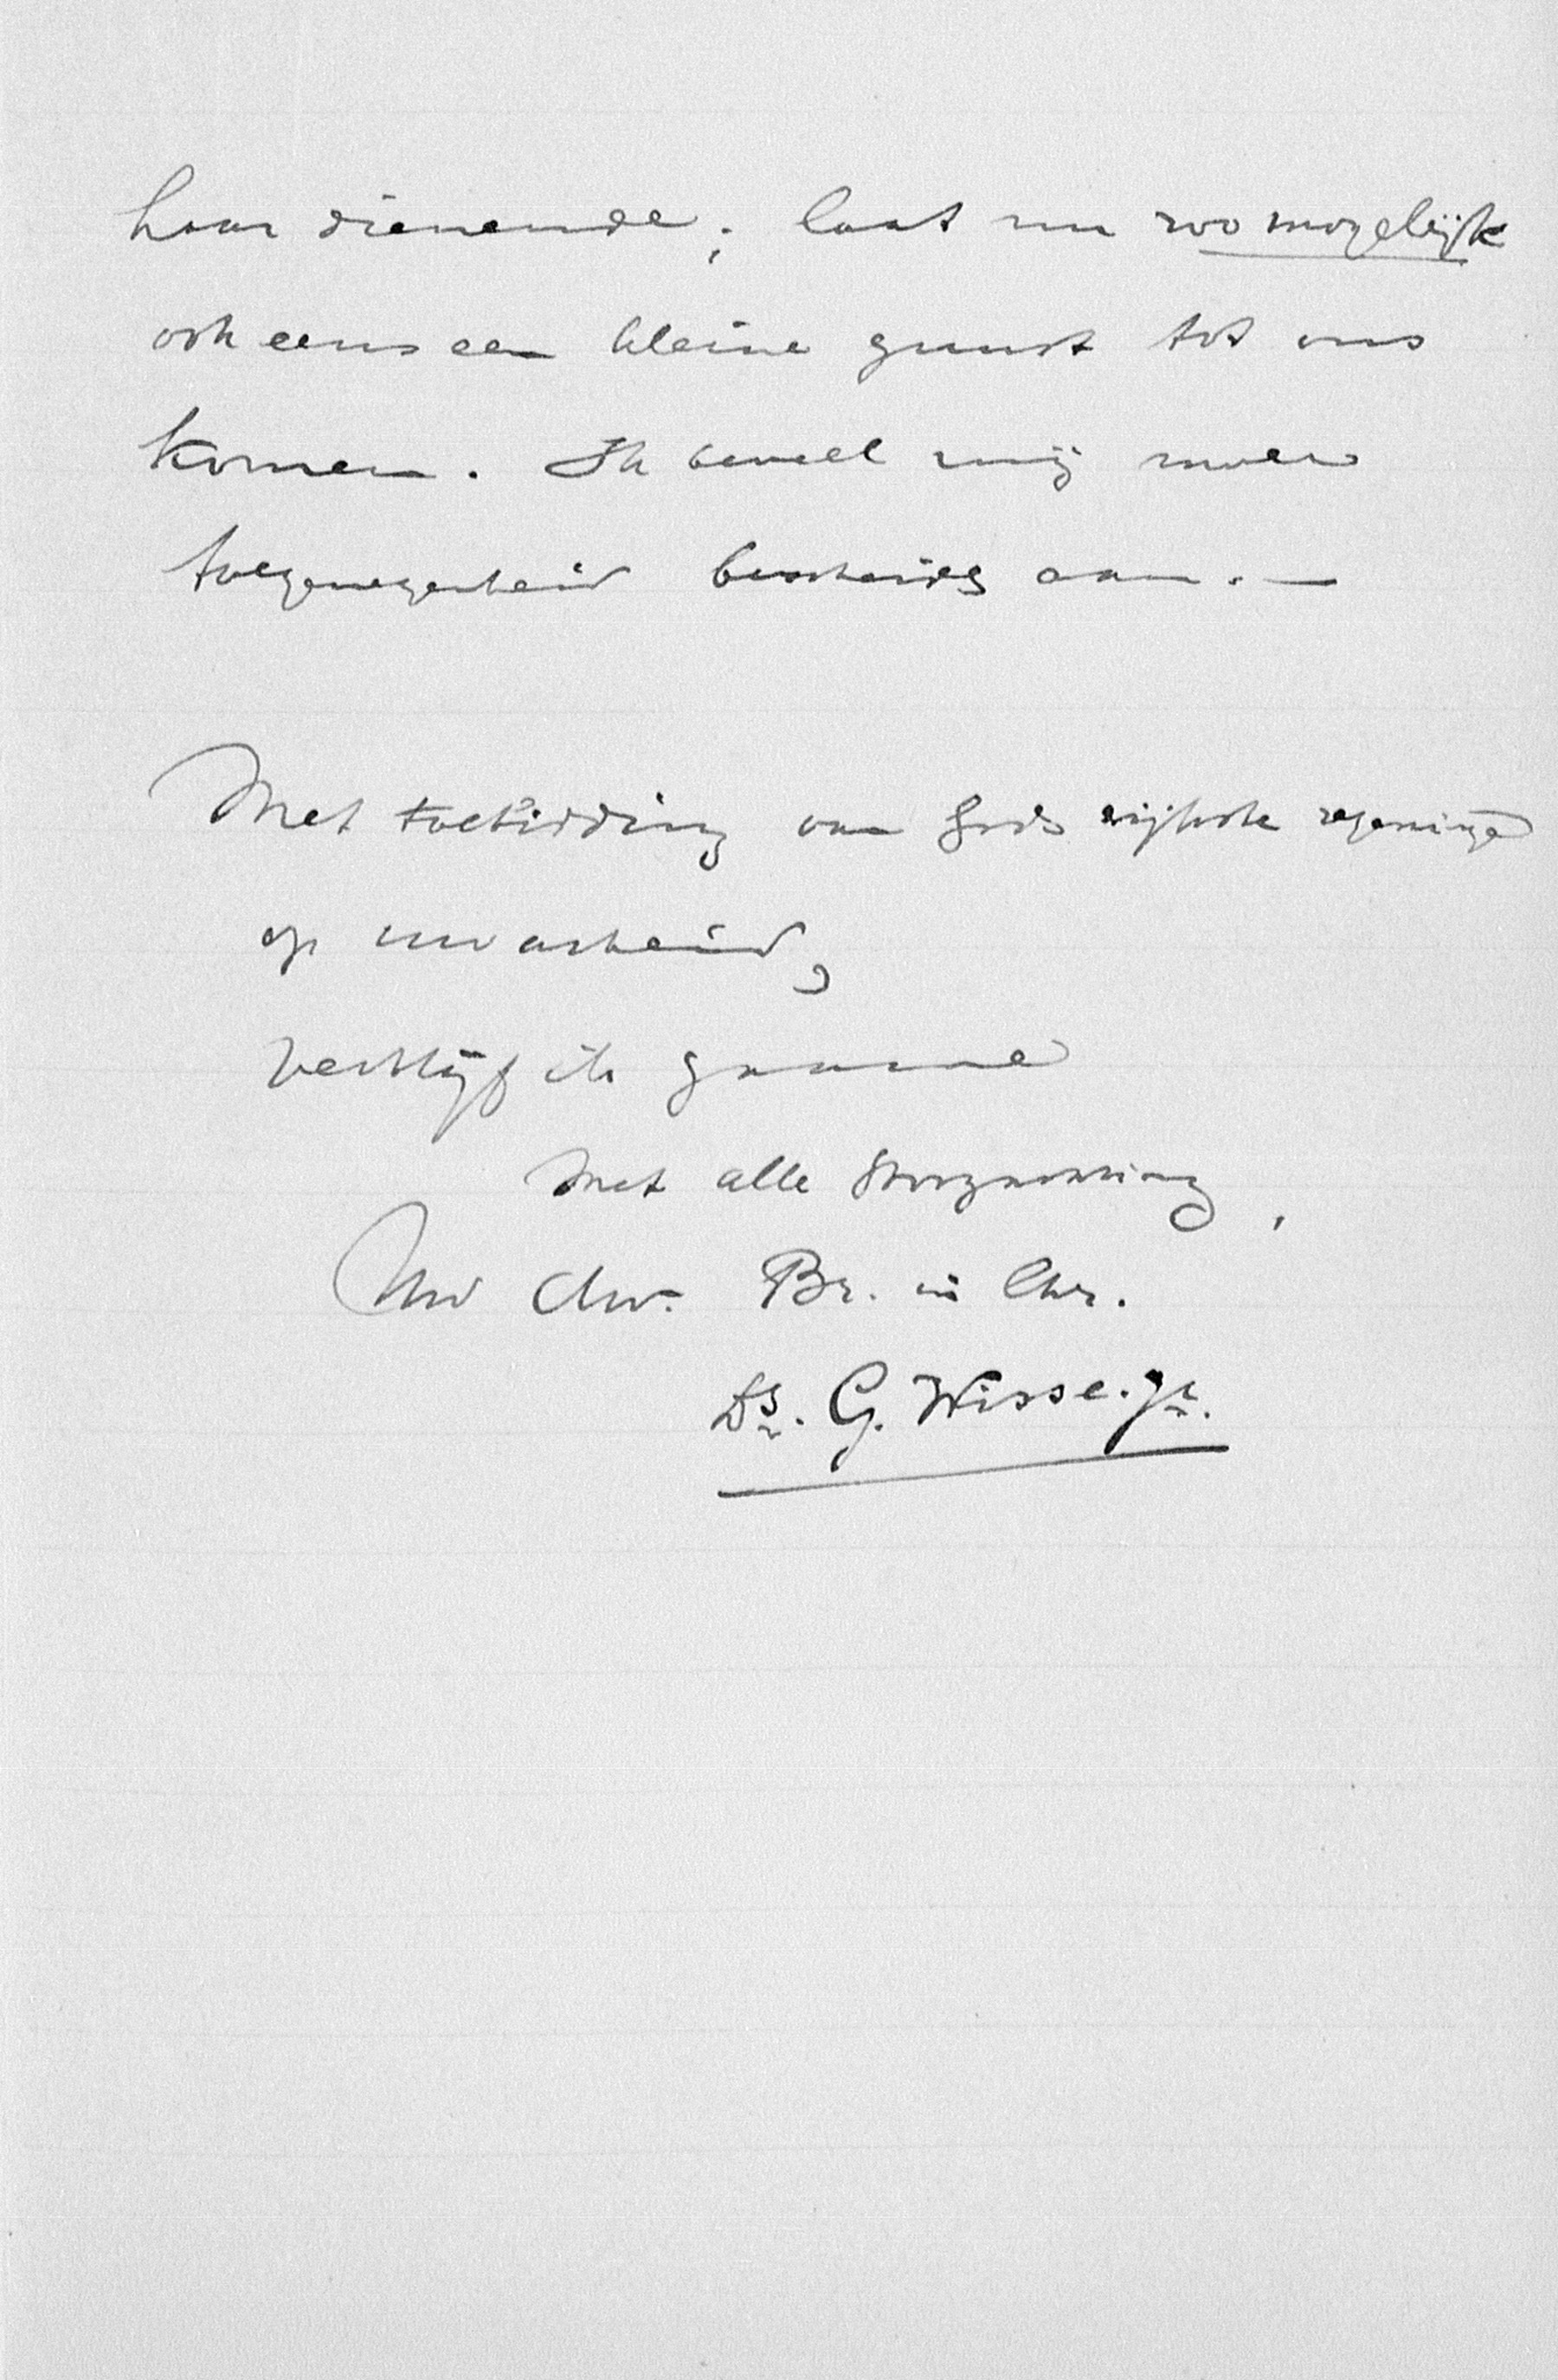 haar dienende; laat nu zoo mogelijk
ook eens een kleine gunst tot ons
komen. Ik beveel mij in uwe
toegenegenheid bescheiden aan. —
Met toebidding van Gods rijkste zegeningen
op uw arbeid,
verblijf ik gaarne
Met alle Hoogachting,
Uw dw. Br. in Chr.
Ds. G. Wisse. Jr.